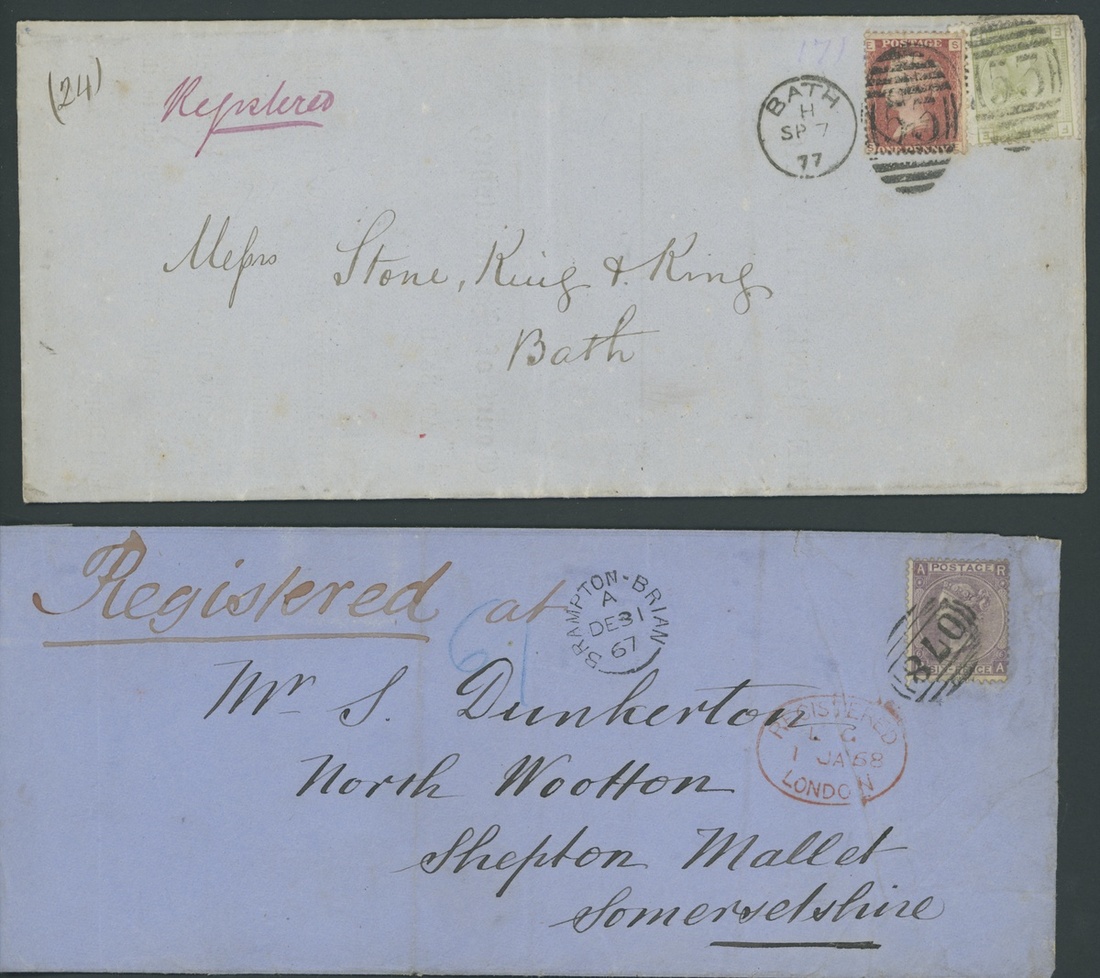 (24)
Registered
171
BATH
H
SP 7
77
E POSTAGE S
53
S ONE PENNY E
53
Messrs Stone, King & King
Bath
Registered at
6/
BRAMPTON-BRIAN
A
DE 31
67
A POSTAGE R
SIXPENCE A
Mr S. Dunkerton
North Wootton
REGISTERED
L C
1 JA 68
LONDON
Shepton Mallet
Somersetshire